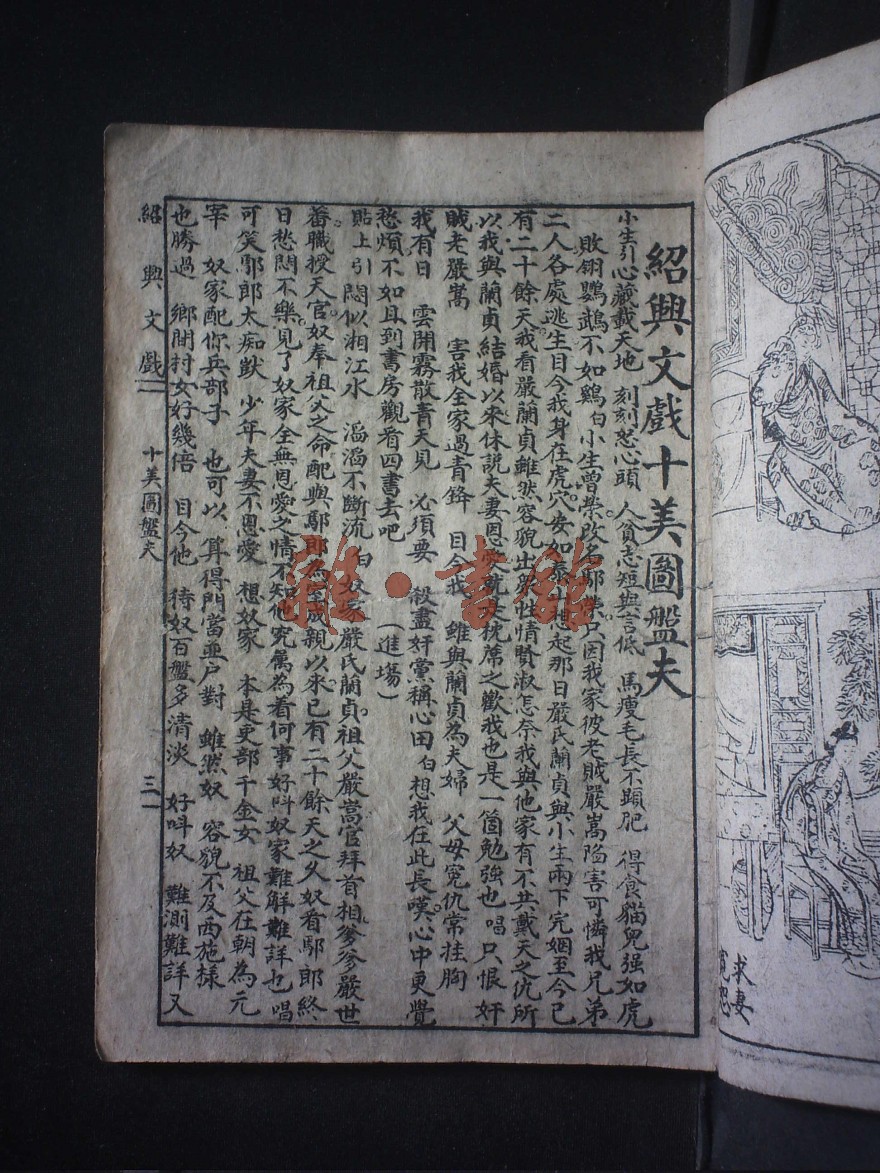 紹興文戲十美圖盤夫
小生引心藏載天地　刻刻恕心頭　人貧志短與言低　馬瘦毛長不顯肥　得食貓兒强如虎
敗翎鸚鵡不如鷄　白小生曾榮改名鄢榮只因我家彼老賊嚴嵩陷害可憐我兄弟
二人各處逃生目今我身住虎穴安如泰　想起那日嚴氏蘭貞與小生兩下完姻至今已
有二十餘天我看嚴蘭貞雖然容貌出　性情賢淑怎奈我與他家有不共戴天之仇所
以我與蘭貞結婚以來休説夫妻恩　就　枕蓆之歡我也是一箇勉強也　唱　只恨奸
賊老嚴嵩　害我全家過青鋒　目今我　雖與蘭貞為夫婦　父母冤仇常挂胸
我有日　雲開霧散青天見　必須要　殺盡奸黨稱心田　白想我在此長嘆心中更覺
愁煩不如且到書房觀看四書去吧　（進塲）
貼上引　悶似湘江水　滔滔不斷流　白　奴家嚴氏蘭貞祖父嚴嵩官拜首相爹爹嚴世
蕃職授天官奴奉祖父之命配與鄢郎為　至成親以來已有二十餘天之久奴看鄢郎終
日愁悶不樂見了奴家全無恩愛之情不知他究屬為着何事好呌奴家難解難詳也　唱
可笑鄢郎太痴獃　少年夫妻不恩愛　想奴家　本是吏部千金女　祖父在朝為元
宰　奴家配你兵部子　也可以　算得門當並户對　雖然奴　容貌不及西施樣
也勝過　鄉間村女好幾倍　目今他　待奴百盤多清淡　好呌奴　難測難詳又
紹興文戲　十美圖盤夫　三一
雜·書館
求妻